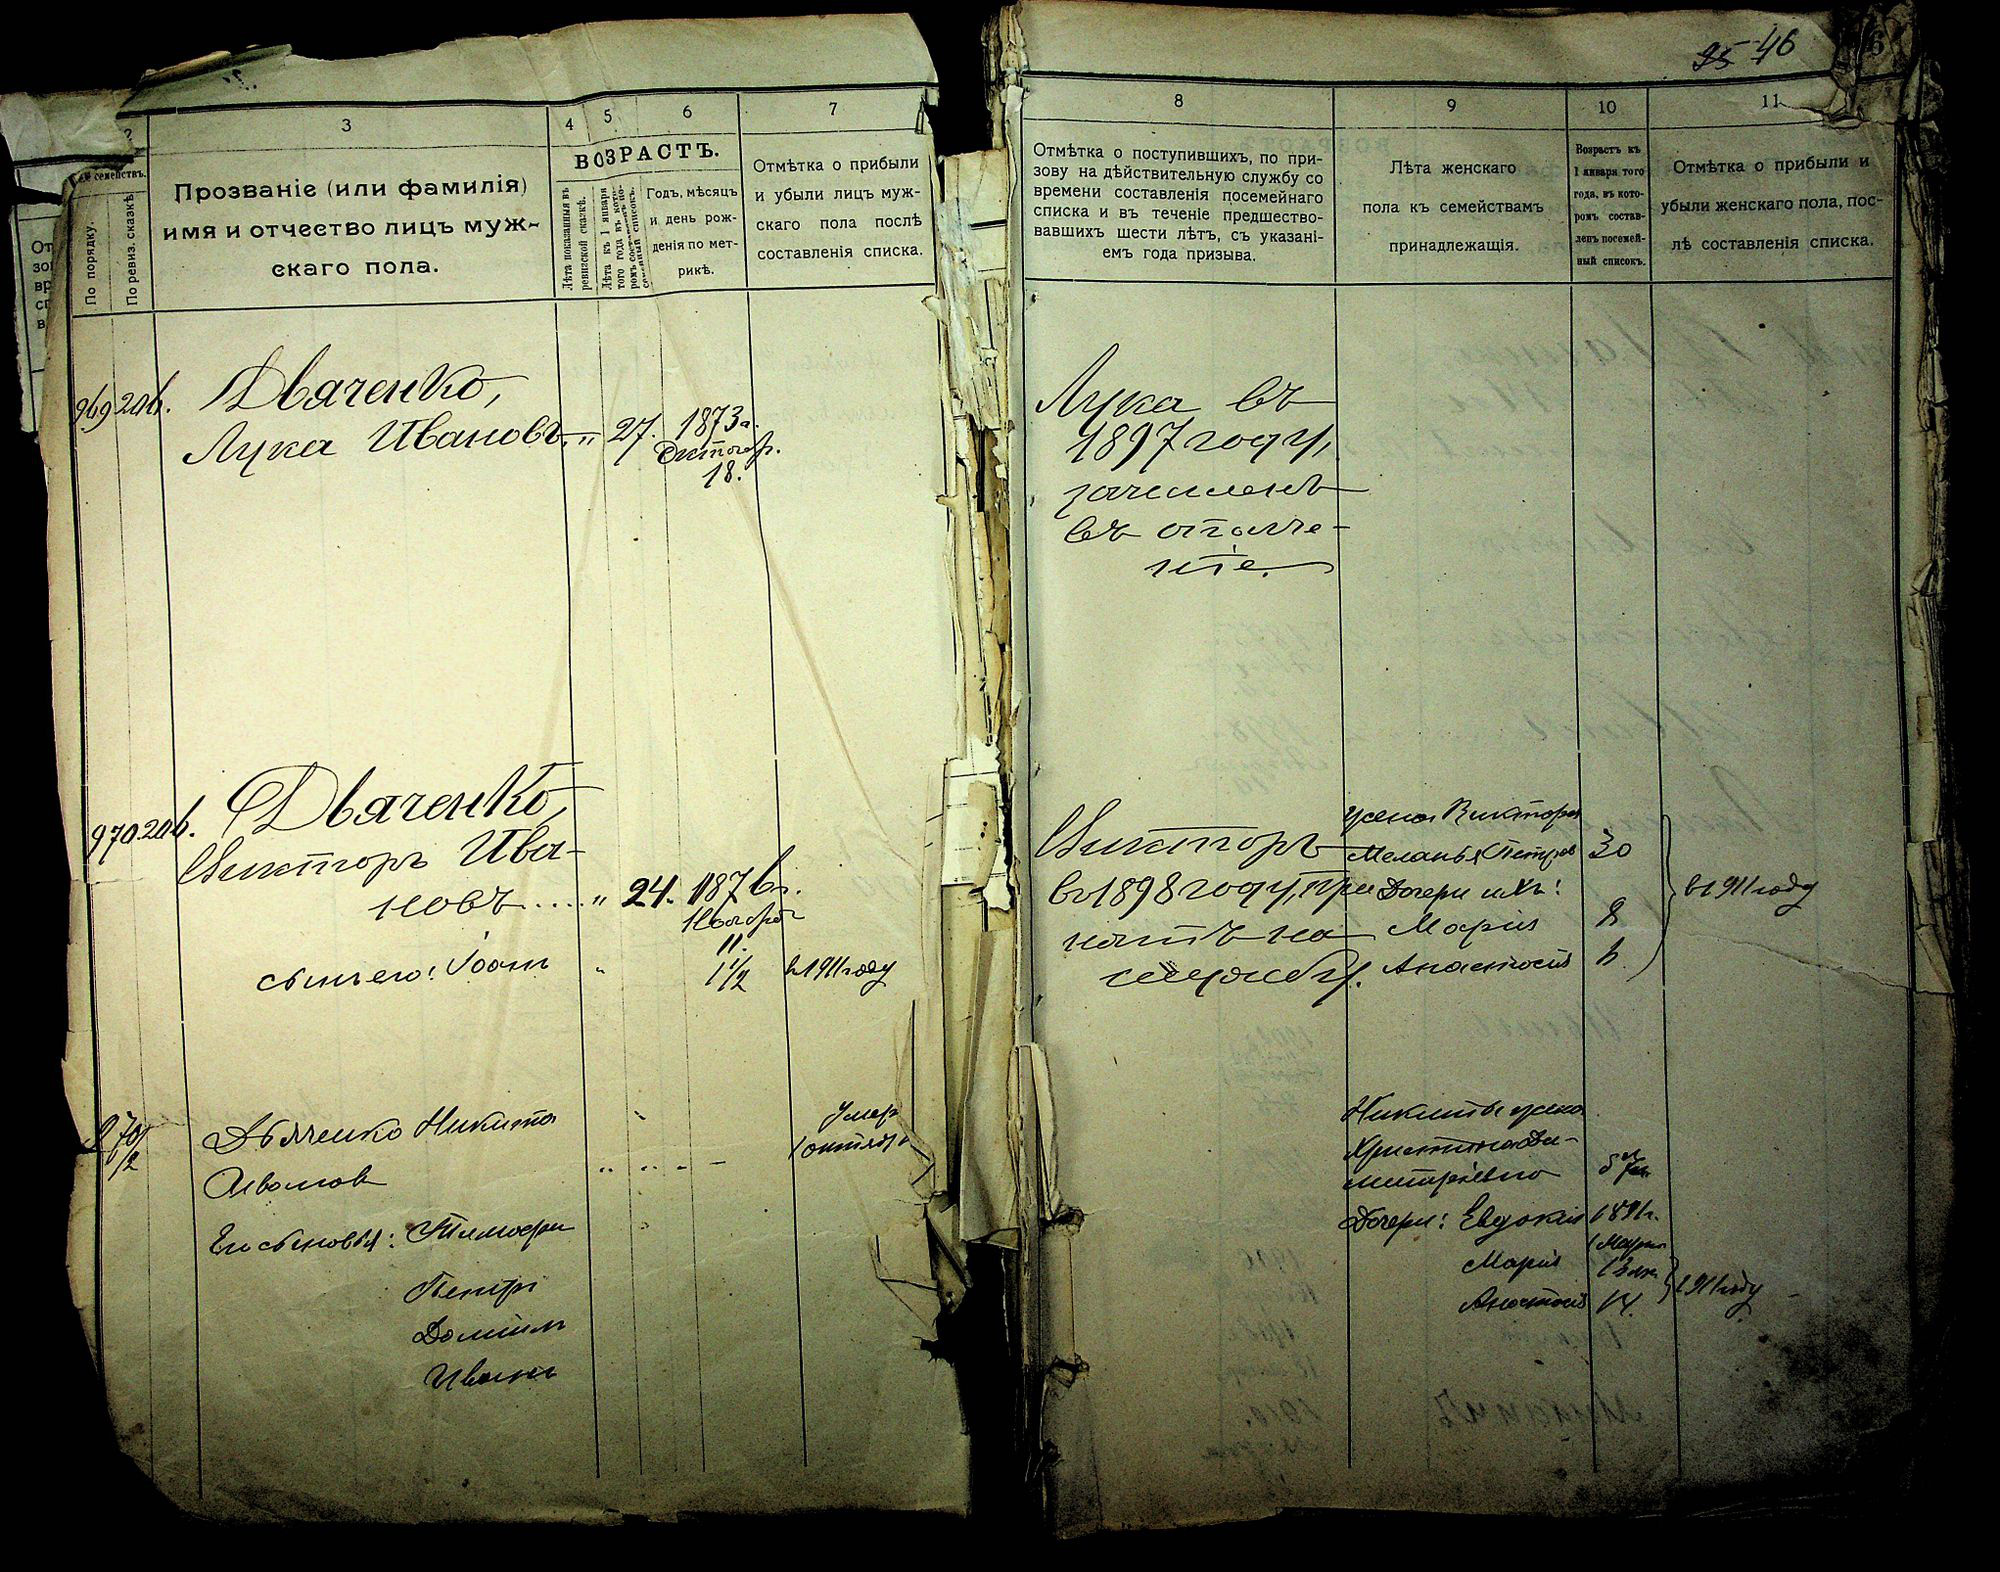 95 46
2
3
4
5
6
7
№ семействъ.
По порядку.
По ревиз. сказкѣ
Прозваніе (или фамилія)
имя и отчество лицъ муж-
скаго пола.
ВОЗРАСТЪ.
Лѣта показанныя въ
ревизской сказкѣ.
Лѣта къ 1 января
того года въ кото-
ромъ составленъ посе-
мейный списокъ.
Годъ, мѣсяцъ
и день рож-
денія по мет-
рикѣ.
Отмѣтка о прибыли
и убыли лицъ муж-
скаго пола послѣ
составленія списка.
969 206. Дьяченко,
Лука Ивановъ „ 27. 1873 г.
Октябр.
18.
970 206. Дьяченко,
Викторъ Ива-
новъ..... „ 24. 1876 г.
Ноября
11.
сынъ его: Іоанъ „ 1½ в 1911 году
970/2 Дьяченко Никита
Иванов
Умер
1 октября
Его сыновья: Тимофей
Петръ
Даніилъ
Иванъ
8
9
10
11
Отмѣтка о поступившихъ, по при-
зову на дѣйствительную службу со
времени составленія посемейнаго
списка и въ теченіе предшество-
вавшихъ шести лѣтъ, съ указані-
емъ года призыва.
Лѣта женскаго
пола къ семействамъ
принадлежащія.
Возрастъ къ
1 января того
года, въ кото-
ромъ состав-
ленъ посемей-
ный списокъ.
Отмѣтка о прибыли и
убыли женскаго пола, пос-
лѣ составленія списка.
Лука въ
1897 году,
зачисленъ
въ ополче-
ніе.
Викторъ
въ 1898 году, при
нятъ на
службу.
жена Виктора
Меланья Петров 30
Дочери ихъ:
Марія 8
Анастасія 6
в 1911 году
Никиты жена
Христина Ди-
митріевна
Дочери: Евдокия 1891 г.
Марія 13 лѣт
Анастасія 14.
в 1911 году